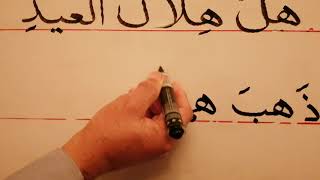 هلّ هِلَال العيدِ
ذَهبَ